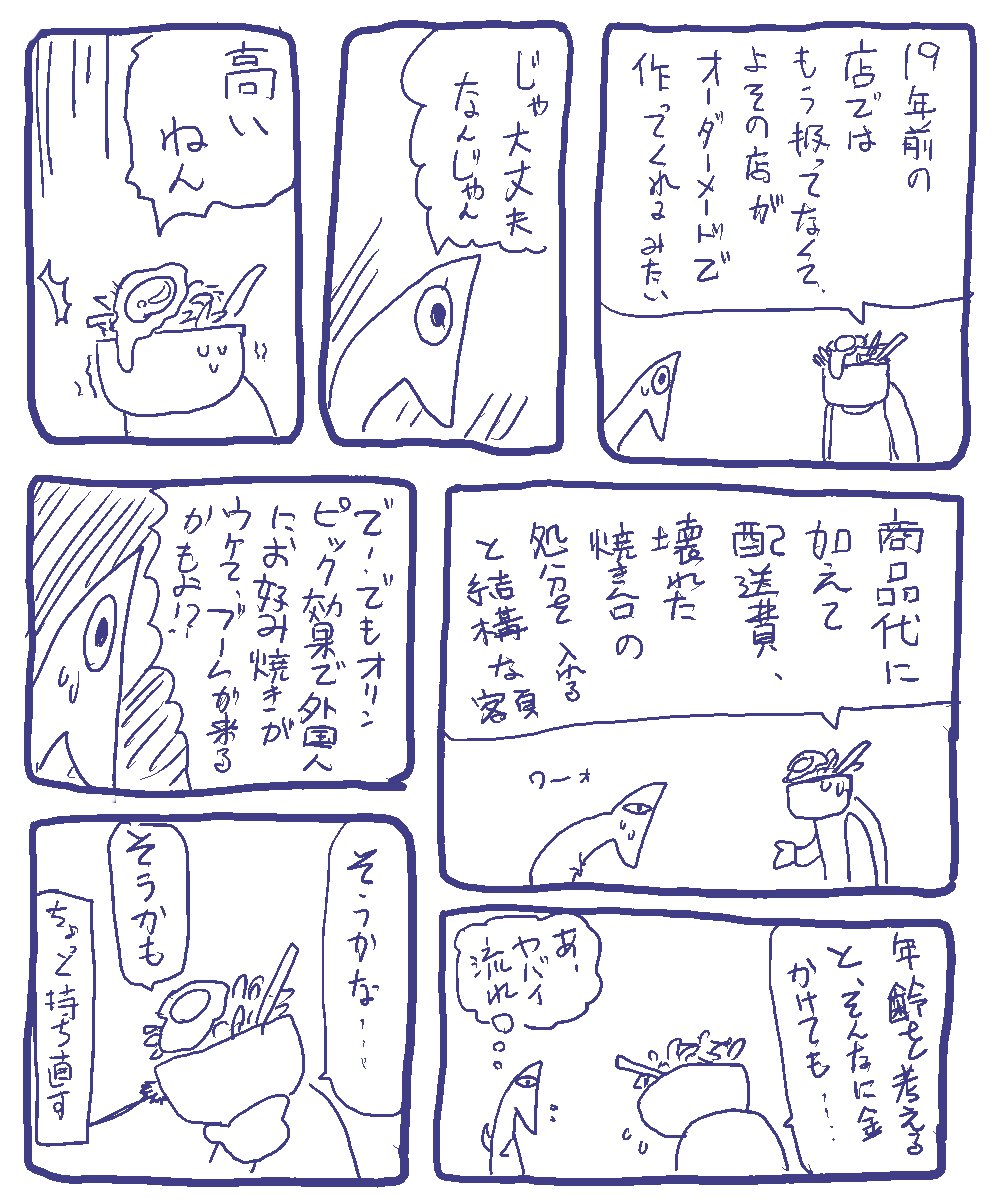 19年前の
店では
もう扱ってなくて、
よその店が
オーダーメードで
作ってくれるみたい
じゃ大丈夫
なんじゃん
高い
ねん
商品代に
加えて
配送費、
壊れた
焼き台の
処分を入れる
と結構な額
ワーォ
で…でもオリン
ピック効果で外国人
にお好み焼きが
ウケて、ブームが来る
かもよ!?
年齢を考える
と、そんなに金
かけても……
あ、
ヤバイ
流れ
そうかな……
そうかも
ちょっと持ち直す